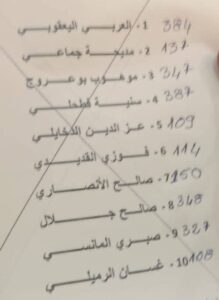 1 - العربي اليعقوبي 384
2 - مديحة جماعي 137
3 - موهوب بوعروج 347
4 - سنية قطحلي 387
5 - عز الدين الدخايلي 109
6 - فوزي القديدي 114
7 - صالح الأنصاري 150
8 - صالح جلال 348
9 - صبري المانسي 327
10 - غسان الرميلي 108